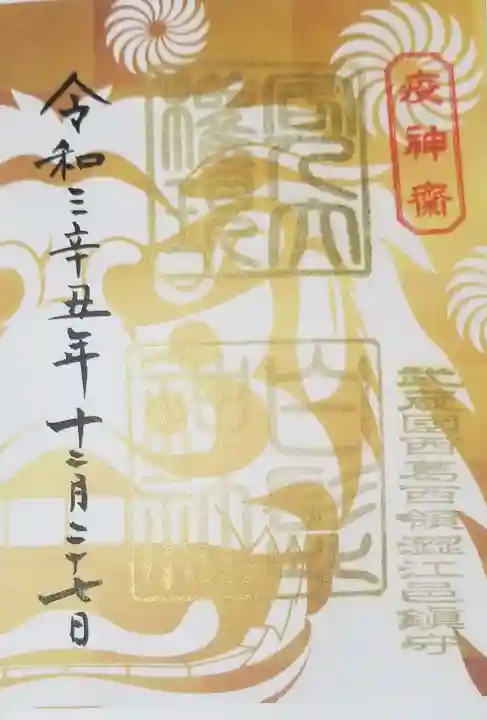 疫神齋
武蔵國西葛西領澀江邑鎮守
令和三辛丑年十二月二十七日